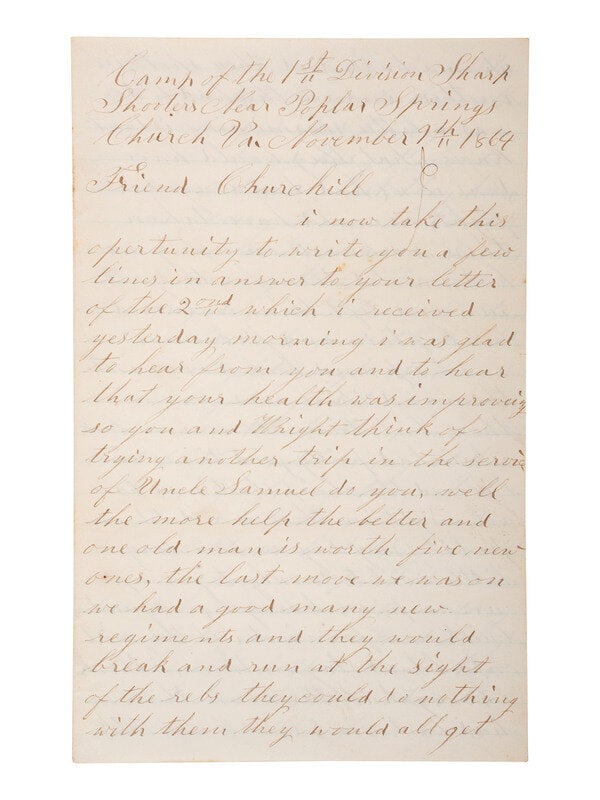 Camp of the 1st Division Sharp
Shooters Near Poplar Springs
Church Va. November 9th 1864
Friend Churchill
i now take this
opertunity to write you a few
lines in answer to your letter
of the 2ond which i received
yesterday morning i was glad
to hear from you and to hear
that your health was improveing
so you and Whight think of
trying another trip in the servic
of Uncle Samuel do you, well
the more help the better and
one old man is worth five new
ones, the last move we was on
we had a good many new
regiments and they would
break and run at the sight
of the rebs they could do nothing
with them they would all get